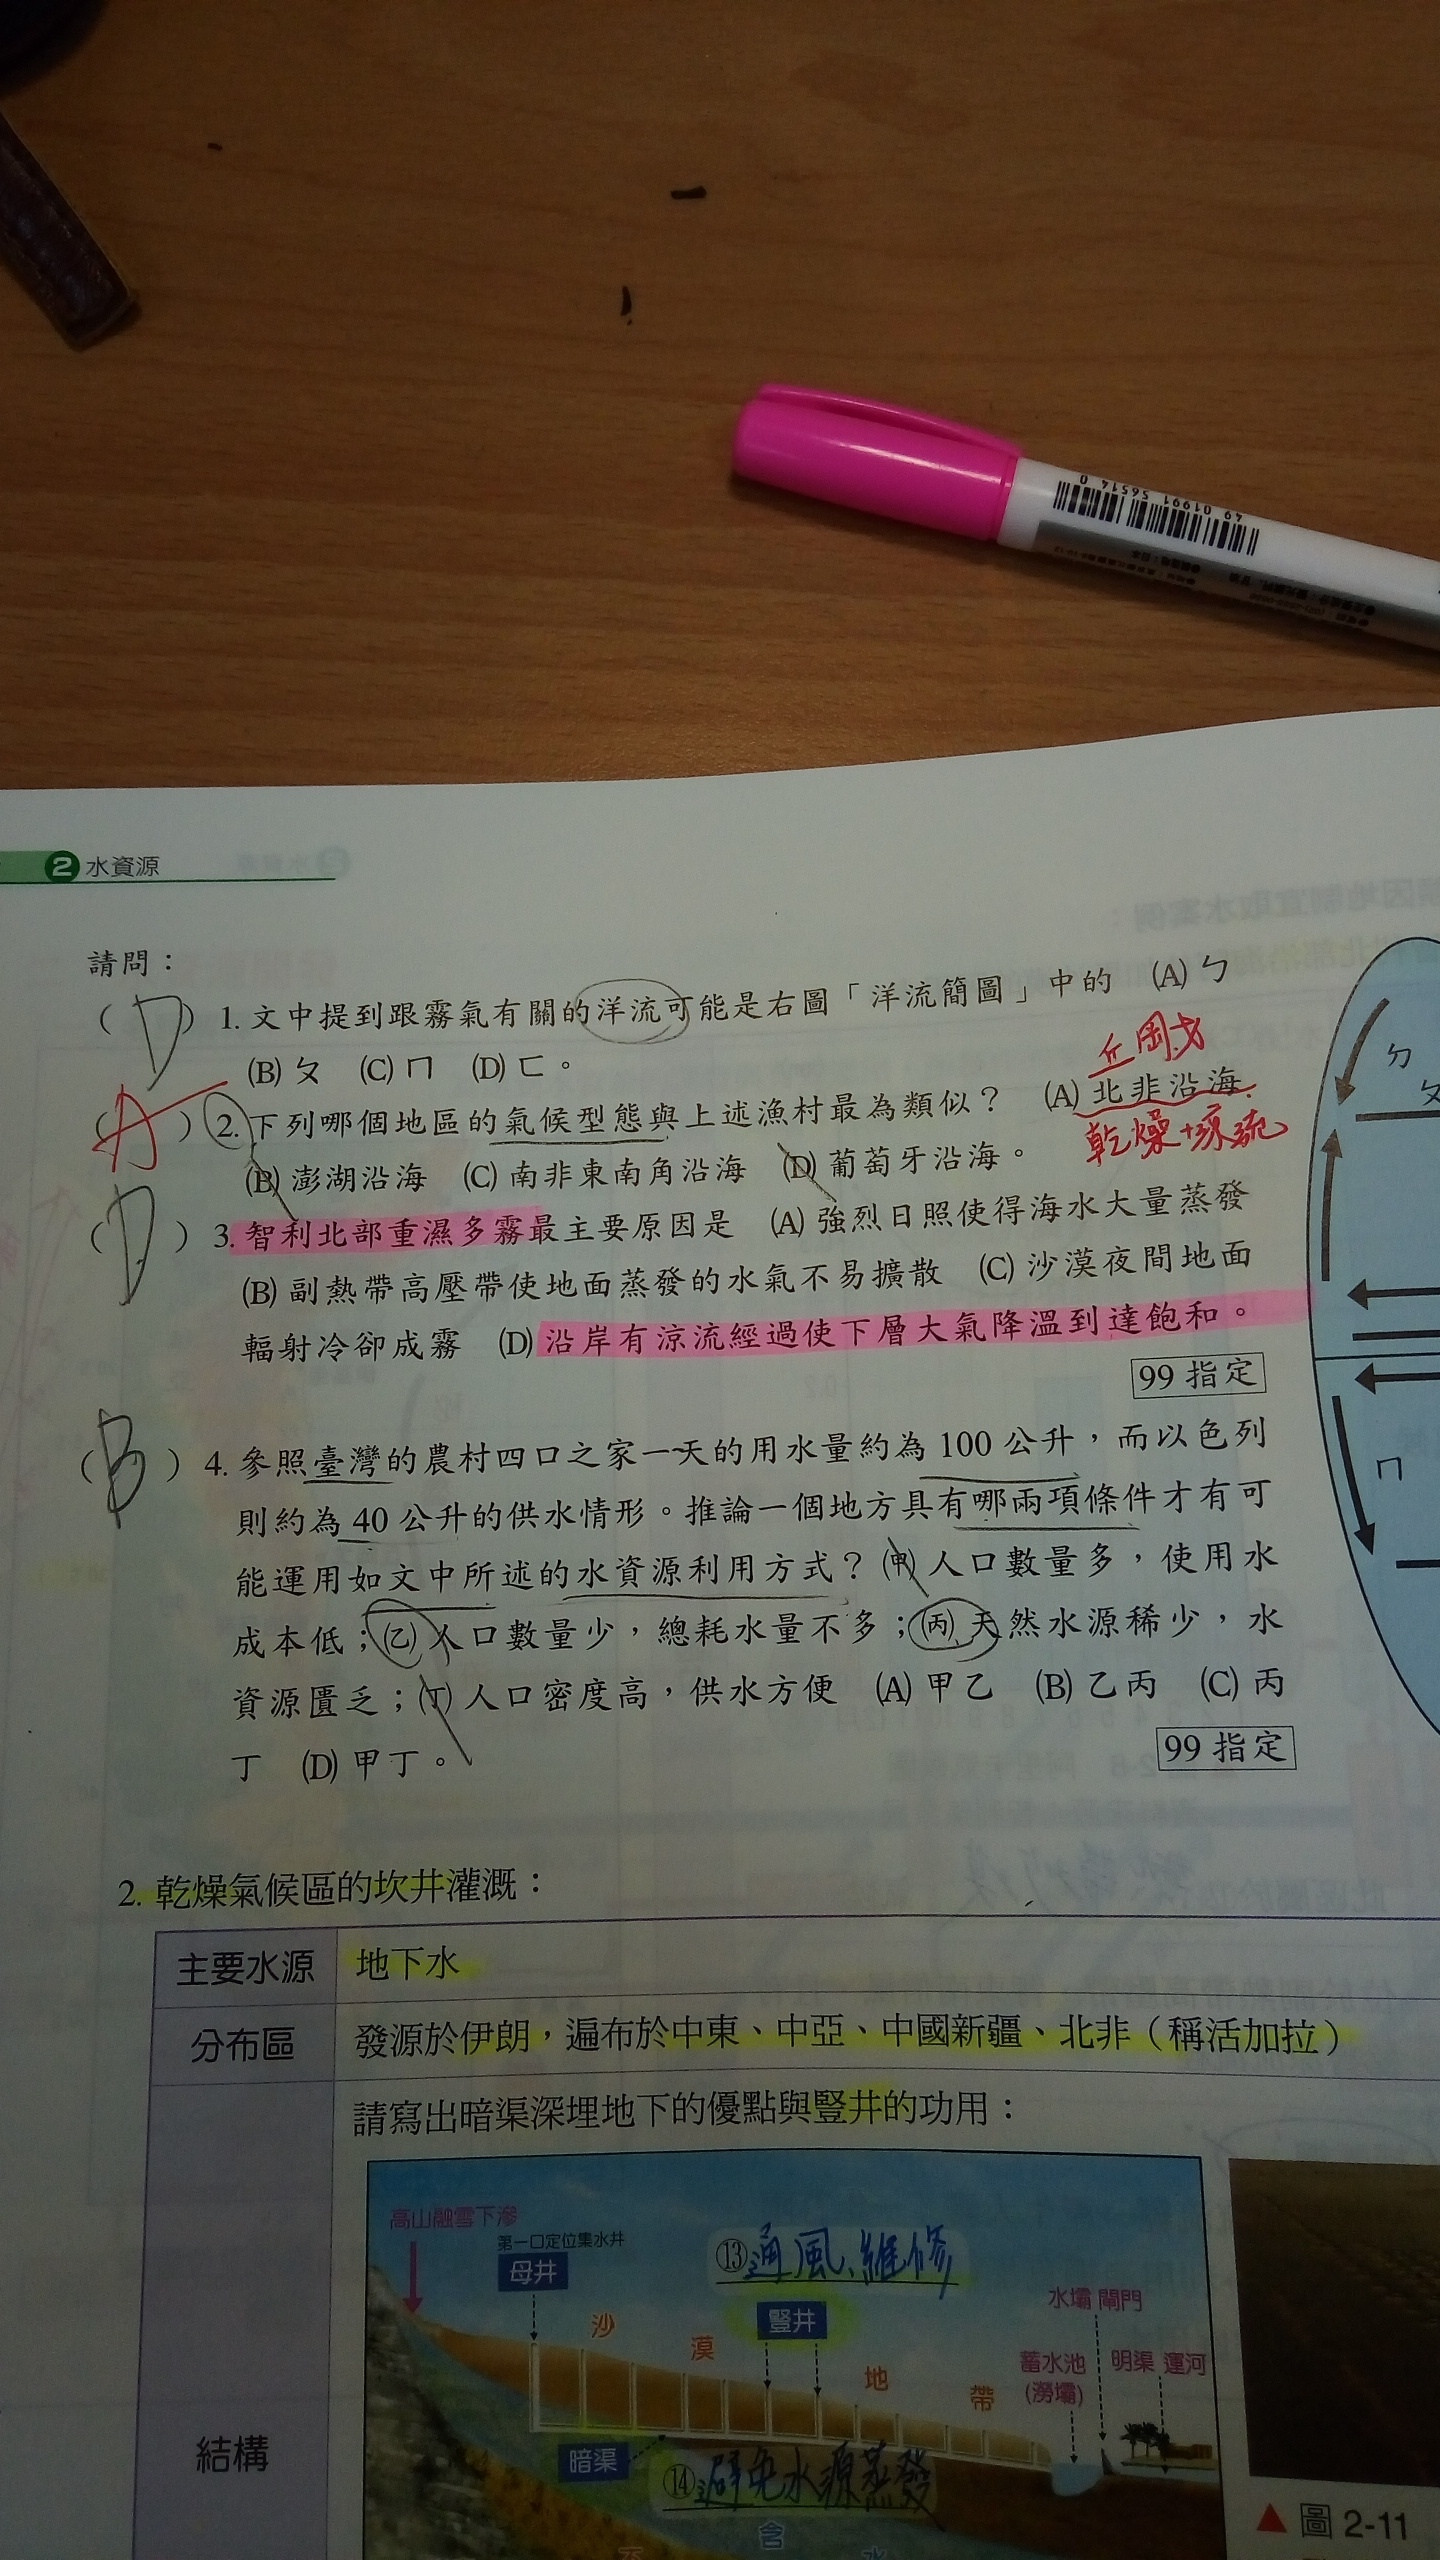 49 01991 56514 0
2 水資源
請問：
( D ) 1. 文中提到跟霧氣有關的洋流可能是右圖「洋流簡圖」中的 (A) ㄅ
(B) ㄆ (C) ㄇ (D) ㄈ。
( A ) 2. 下列哪個地區的氣候型態與上述漁村最為類似？ (A) 北非沿海
乾燥+涼流
(B) 澎湖沿海 (C) 南非東南角沿海 (D) 葡萄牙沿海。
( D ) 3. 智利北部重濕多霧最主要原因是 (A) 強烈日照使得海水大量蒸發
(B) 副熱帶高壓帶使地面蒸發的水氣不易擴散 (C) 沙漠夜間地面
輻射冷卻成霧 (D) 沿岸有涼流經過使下層大氣降溫到達飽和。
99 指定
( B ) 4. 參照臺灣的農村四口之家一天的用水量約為 100 公升，而以色列
則約為 40 公升的供水情形。推論一個地方具有哪兩項條件才有可
能運用如文中所述的水資源利用方式？(甲) 人口數量多，使用水
成本低；(乙) 人口數量少，總耗水量不多；(丙) 天然水源稀少，水
資源匱乏；(丁) 人口密度高，供水方便 (A) 甲乙 (B) 乙丙 (C) 丙
丁 (D) 甲丁。
99 指定
ㄅ
ㄆ
ㄇ
2. 乾燥氣候區的坎井灌溉：
主要水源 地下水
分布區 發源於伊朗，遍布於中東、中亞、中國新疆、北非（稱活加拉）
請寫出暗渠深埋地下的優點與豎井的功用：
結構
高山融雪下滲
第一口定位集水井
母井
⑬通風、維修
豎井
沙漠地帶
水壩 閘門
蓄水池 明渠 運河
(澇壩)
暗渠
⑭避免水源蒸發
含
水
▲ 圖 2-11